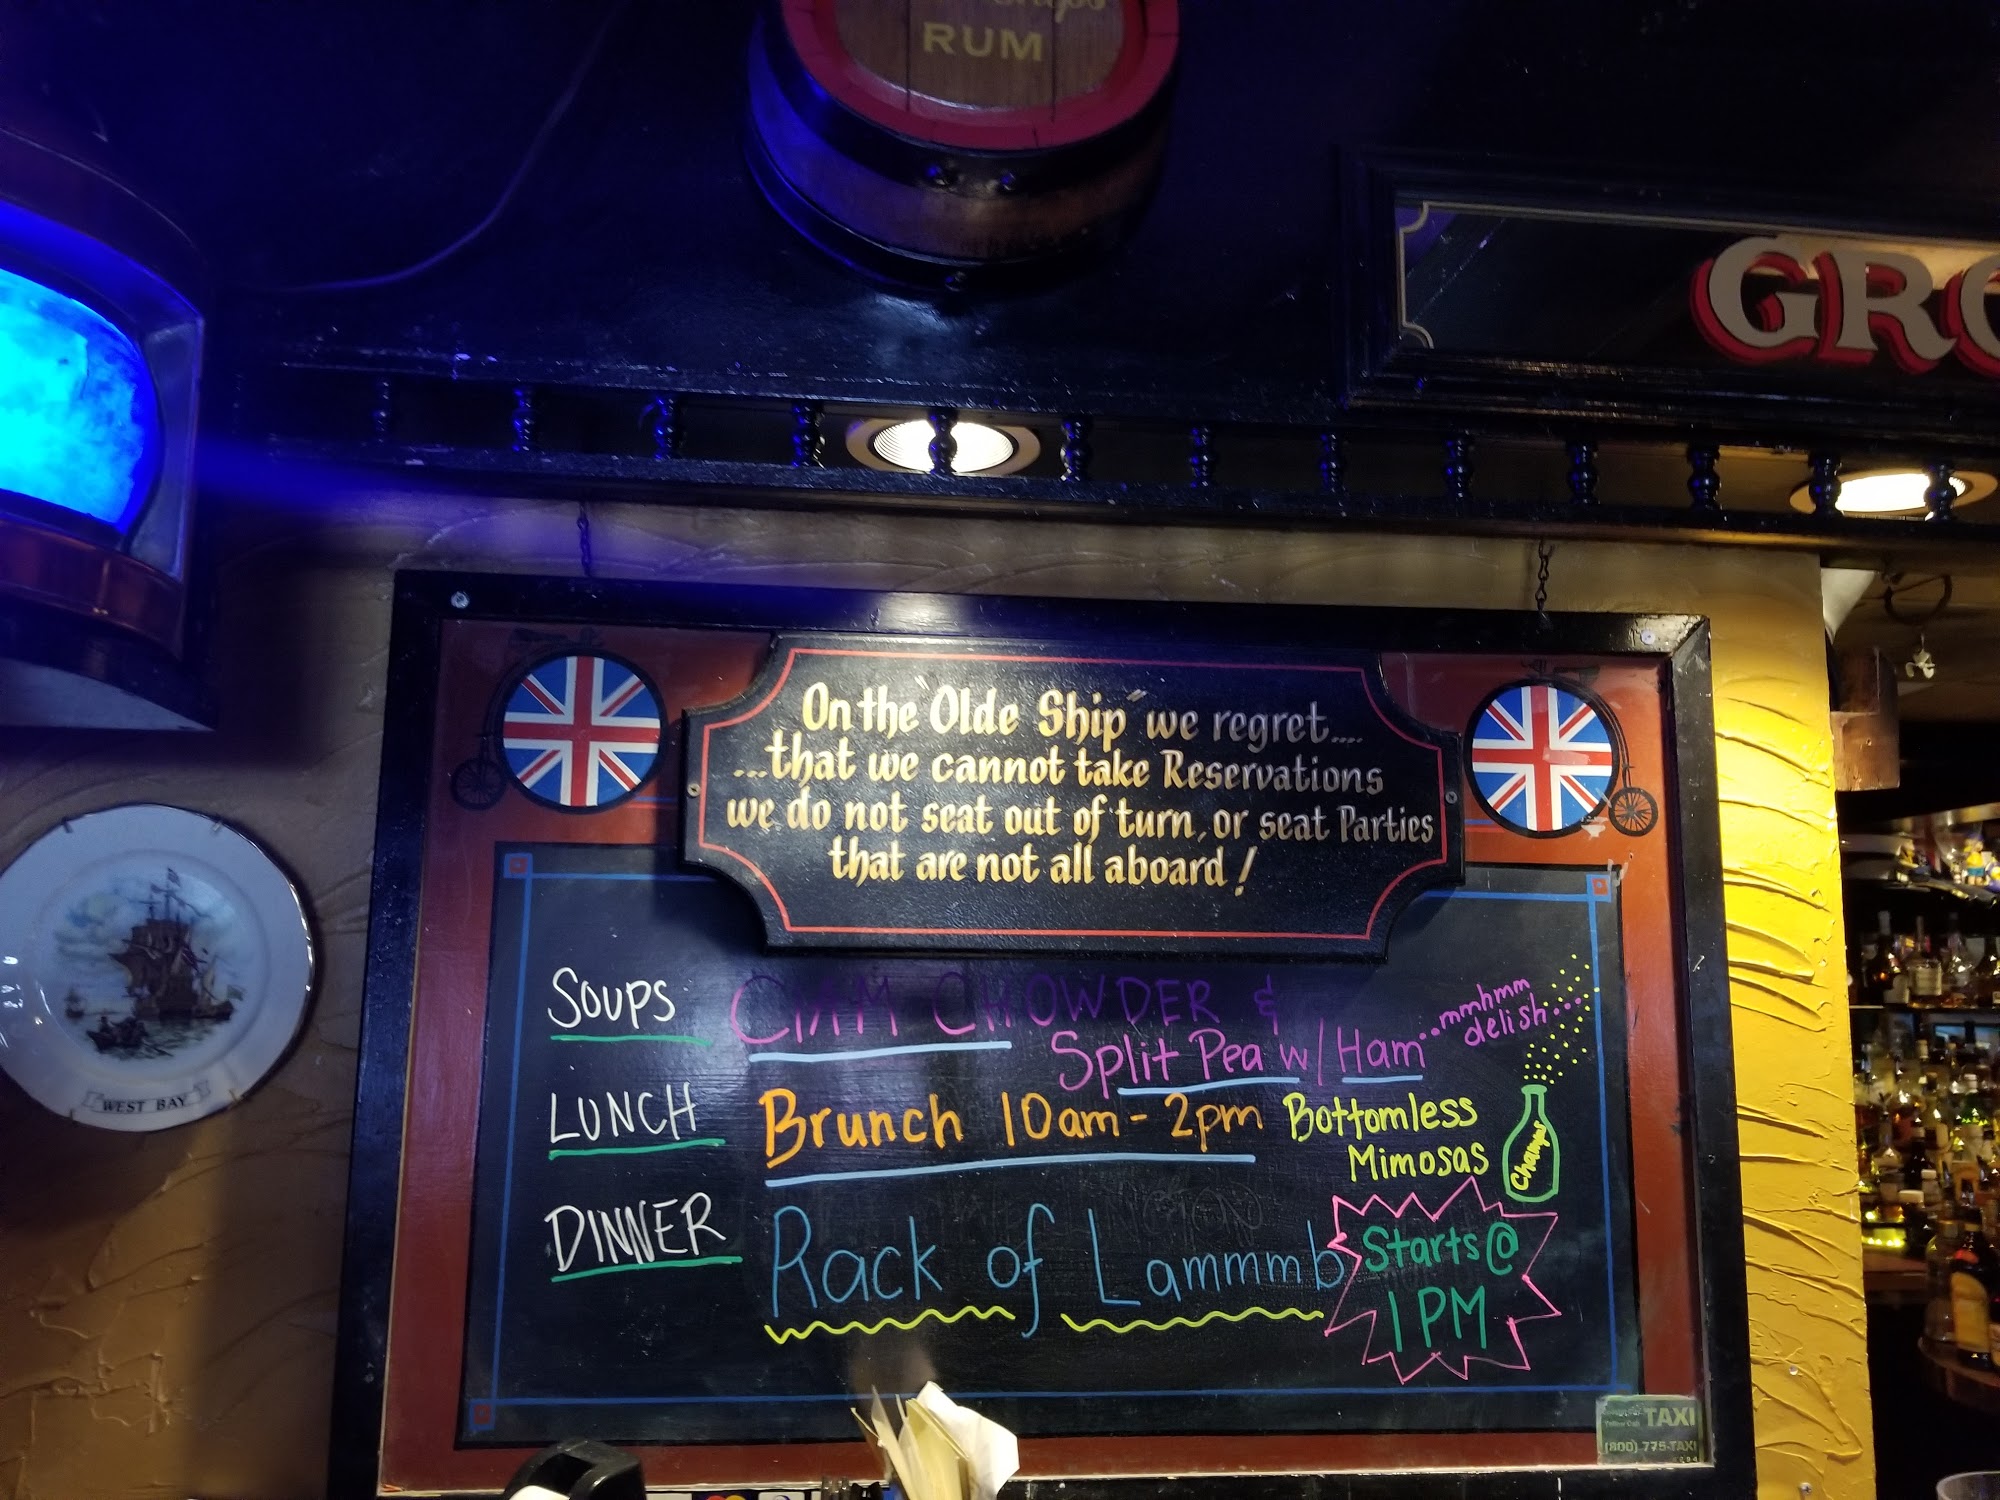 RUM
GRO
On the "Olde Ship" we regret....
...that we cannot take Reservations
we do not seat out of turn, or seat Parties
that are not all aboard!
SOUPS CLAM CHOWDER &
Split Pea w/ Ham..mmhmm
delish...
LUNCH Brunch 10am - 2pm Bottomless
Mimosas
Champs
DINNER Rack of Lammmb Starts @
1 PM
WEST BAY
TAXI
(800) 775-TAXI